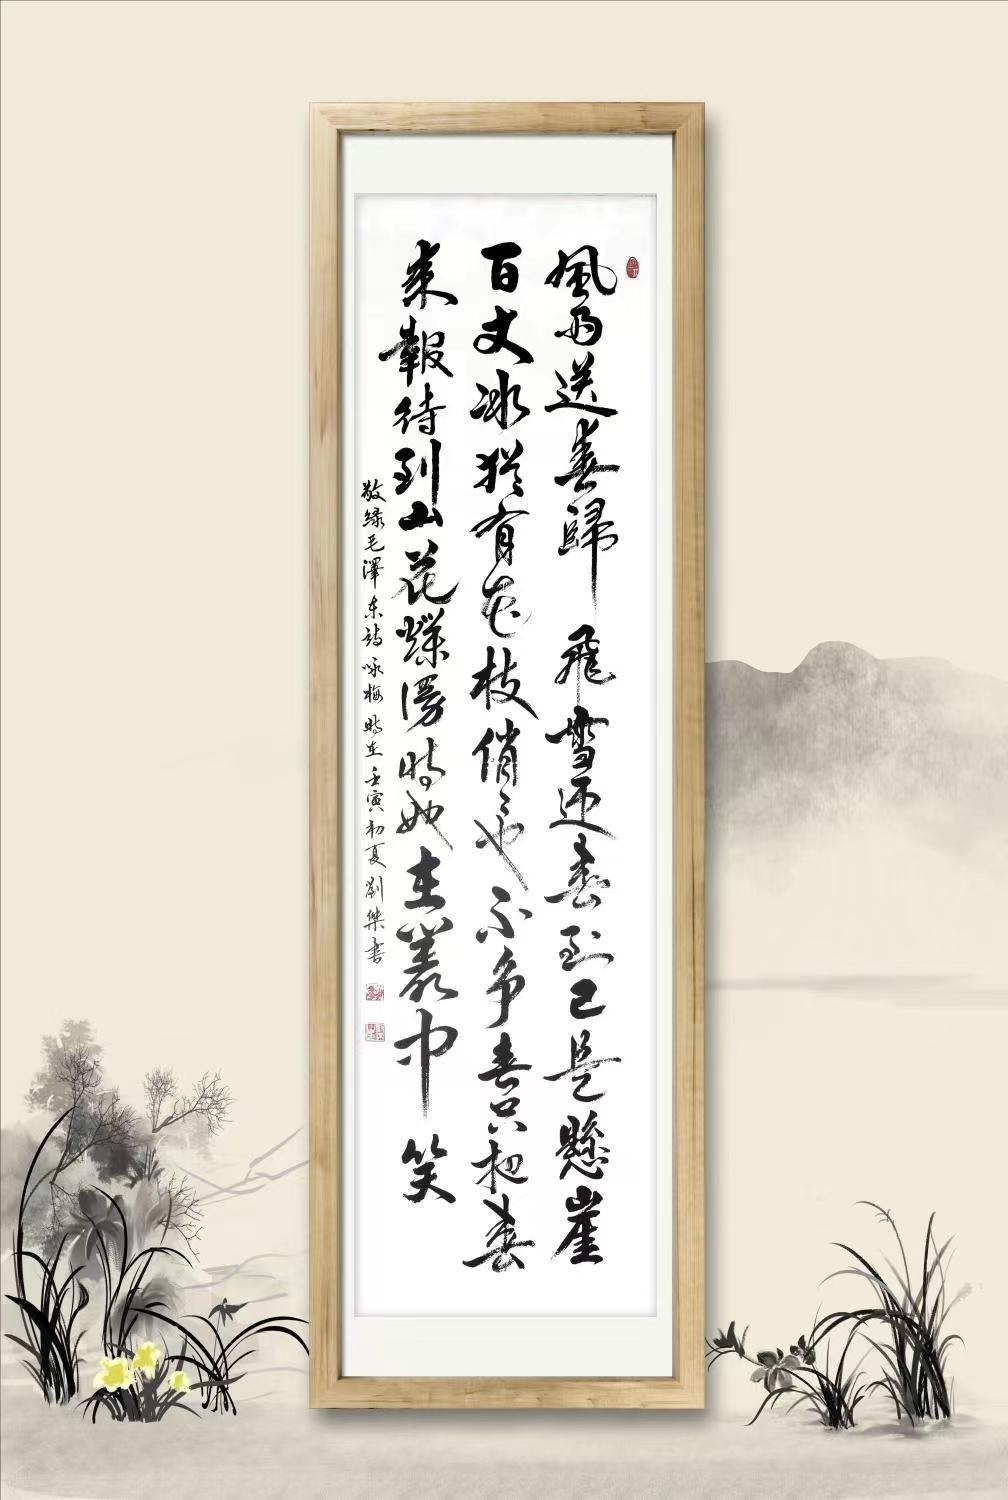 風雨送春歸飛雪迎春到已是懸崖
百丈冰猶有花枝俏〻也不争春只把春
来報待到山花爛漫時她在叢中笑
敬绿毛澤东詩咏梅時在壬寅初夏劉傑书